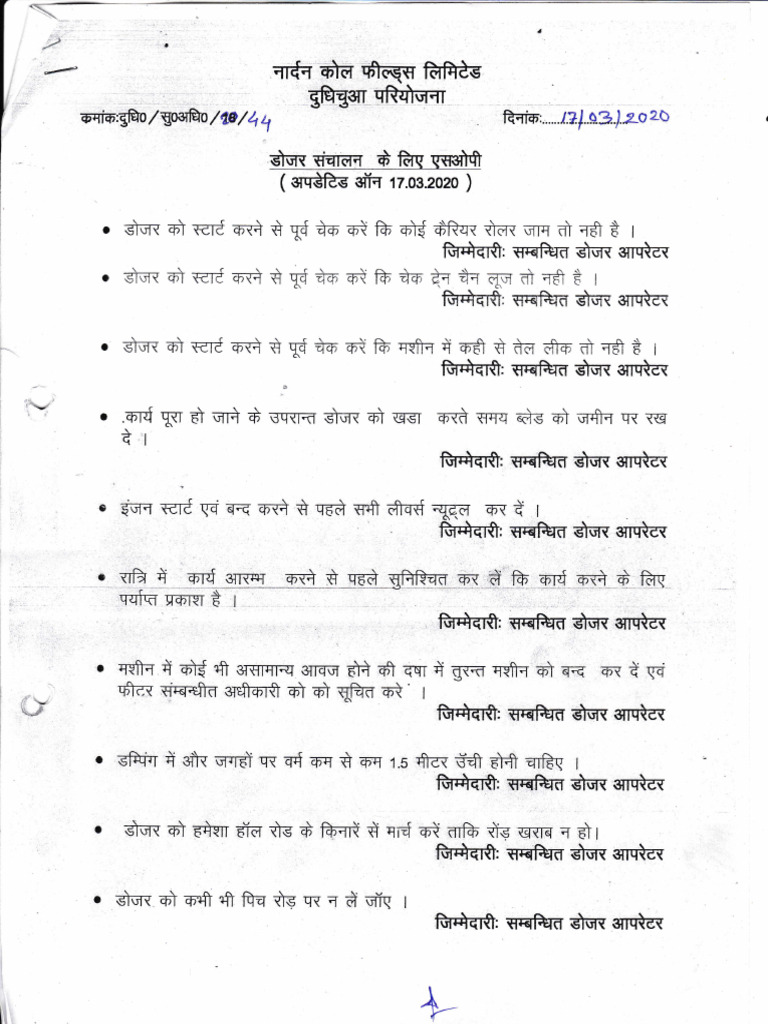 नार्दन कोल फील्ड्स लिमिटेड
दुधिचुआ परियोजना
कमांकःदुधि0/सु0अधि0/20/44 दिनांकः......17/03/2020
डोजर संचालन के लिए एसओपी
( अपडेटिड ऑन 17.03.2020 )
• डोजर को स्टार्ट करने से पूर्व चेक करें कि कोई कैरियर रोलर जाम तो नही है ।
जिम्मेदारीः सम्बन्धित डोजर आपरेटर
• डोजर को स्टार्ट करने से पूर्व चेक करें कि चेक ट्रेन चैन लूज तो नही है ।
जिम्मेदारीः सम्बन्धित डोजर आपरेटर
• डोजर को स्टार्ट करने से पूर्व चेक करें कि मशीन में कही से तेल लीक तो नही है ।
जिम्मेदारीः सम्बन्धित डोजर आपरेटर
• .कार्य पूरा हो जाने के उपरान्त डोजर को खडा करते समय ब्लेड को जमीन पर रख
दे ।
जिम्मेदारीः सम्बन्धित डोजर आपरेटर
• इंजन स्टार्ट एवं बन्द करने से पहले सभी लीवर्स न्यूट्रल कर दें ।
जिम्मेदारीः सम्बन्धित डोजर आपरेटर
• रात्रि में कार्य आरम्भ करने से पहले सुनिश्चित कर लें कि कार्य करने के लिए
पर्याप्त प्रकाश है ।
जिम्मेदारीः सम्बन्धित डोजर आपरेटर
• मशीन में कोई भी असामान्य आवज होने की दषा में तुरन्त मशीन को बन्द कर दें एवं
फीटर संम्बन्धीत अधीकारी को को सूचित करे ।
जिम्मेदारीः सम्बन्धित डोजर आपरेटर
• डम्पिंग में और जगहों पर वर्म कम से कम 1.5 मीटर उॅंची होनी चाहिए ।
जिम्मेदारीः सम्बन्धित डोजर आपरेटर
• डोजर को हमेशा हॉल रोड के किनारें सें मार्च करें ताकि रोंड़ खराब न हो।
जिम्मेदारीः सम्बन्धित डोजर आपरेटर
• डोजर को कभी भी पिच रोड़ पर न लें जॉए ।
जिम्मेदारीः सम्बन्धित डोजर आपरेटर